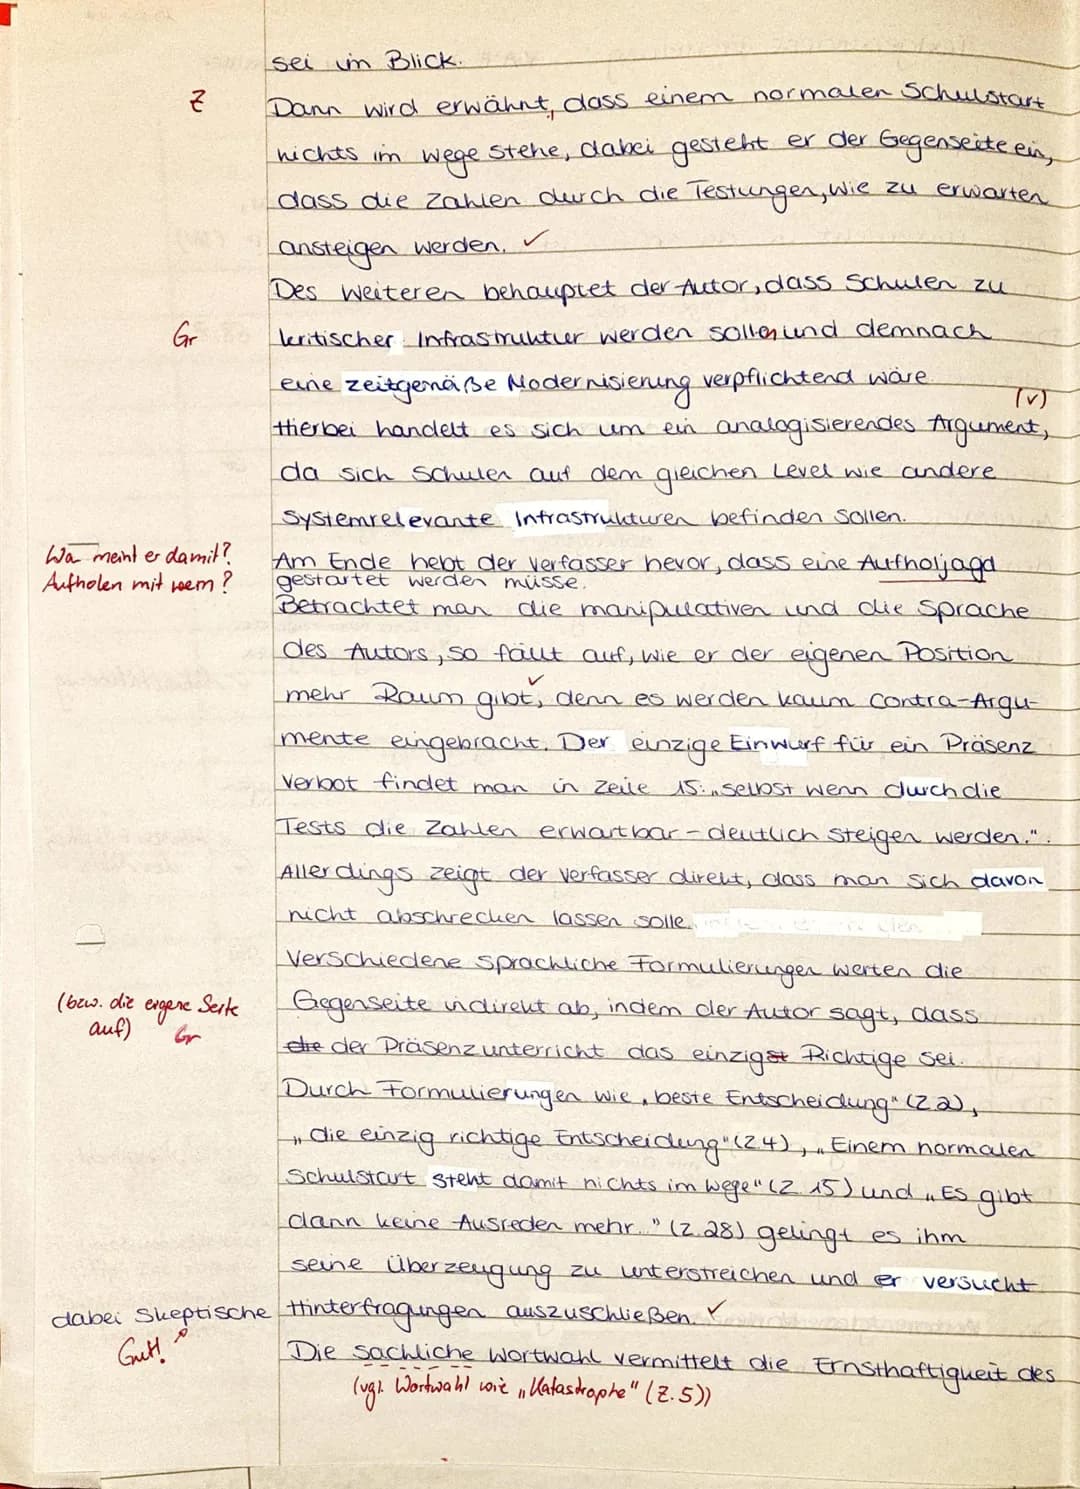 sei im Blick.
Z
Dann wird erwähnt, dass einem normalen Schulstart
nichts im wege stehe, dabei gesteht er der Gegenseite ein,
dass die Zahlen durch die Testungen, wie zu erwarten
ansteigen werden. ✓
Des weiteren behauptet der Autor, dass Schulen zu
Gr
kritischer Infrastruktur werden sollen und demnach
eine zeitgemäße Modernisierung verpflichtend wäre.
(v)
Hierbei handelt es sich um ein analogisierendes Argument,
da sich Schulen auf dem gleichen Level wie andere
systemrelevante Infrastrukturen befinden sollen.
Wa meint er damit?
Aufholen mit wem?
Am Ende hebt der Verfasser hevor, dass eine Aufholjagd
gestartet werden müsse.
Betrachtet man die manipulativen und die Sprache
des Autors, so fällt auf, wie er der eigenen Position
mehr Raum gibt, denn es werden kaum Contra-Argu-
mente eingebracht. Der einzige Einwurf für ein Präsenz
verbot findet man in Zeile 15: „selbst wenn durch die
Tests die Zahlen erwartbar – deutlich steigen werden.".
Allerdings zeigt der Verfasser direkt, dass man sich davon
nicht abschrecken lassen solle.
Verschiedene sprachliche Formulierungen werten die
(bzw. die eigene Seite
auf) Gr
Gegenseite indirekt ab, indem der Autor sagt, dass
die der Präsenzunterricht das einzigst Richtige sei.
Durch Formulierungen wie „beste Entscheidung" (Z.2),
„die einzig richtige Entscheidung" (Z.4), „Einem normalen
Schulstart steht damit nichts im wege" (Z. 15) und „Es gibt
dann keine Ausreden mehr..." (Z.28) gelingt es ihm
seine Überzeugung zu unterstreichen und er versucht
dabei Skeptische Hinterfragungen auszuschließen. ✓
Gut!
Die sachliche Wortwahl vermittelt die Ernsthaftigkeit des
(vgl. Wortwahl wie „Katastrophe" (Z.5))